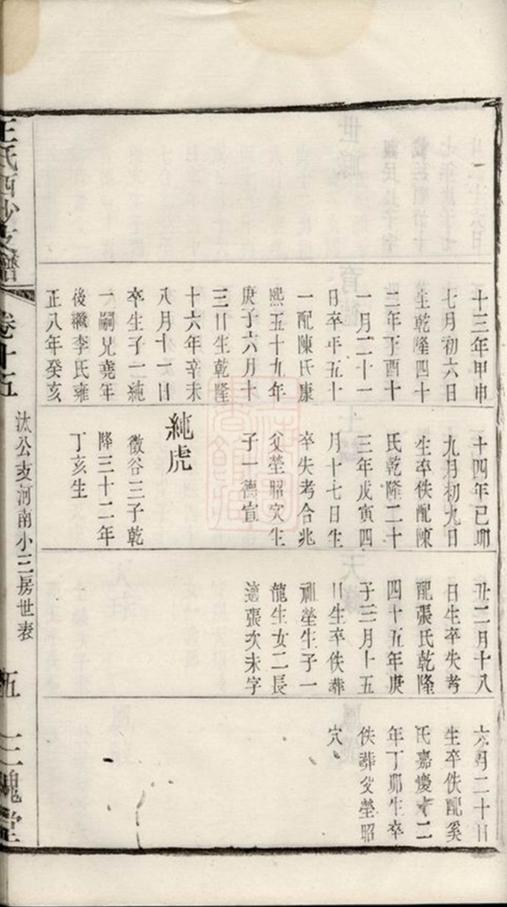 十三年甲申
七月初六日
生乾隆四十
二年丁酉十
一月二十一
日卒年五十
一配陳氏康
熙五十九年
庚子六月十
三日生乾隆
十六年辛未
八月十一日
卒生子一純
一嗣兄堯年
後繼李氏雍
正八年癸亥
十四年己卯
九月初九日
生卒佚配陳
氏乾隆二十
三年戊寅四
月十七日生
卒失考合兆
父塋昭穴生
子一德宣
純虎
徵谷三子乾
隆三十二年
丁亥生
丑二月十八
日生卒失考
配張氏乾隆
四十五年庚
子三月十五
日生卒佚葬
祖塋生子一
龍生女二長
適張次未字
六月二十日
生卒佚配奚
氏嘉慶十二
年丁卯生卒
佚葬父塋昭
穴
王氏西沙支譜
卷十五
汰公支河南小三房世表
五
三槐堂